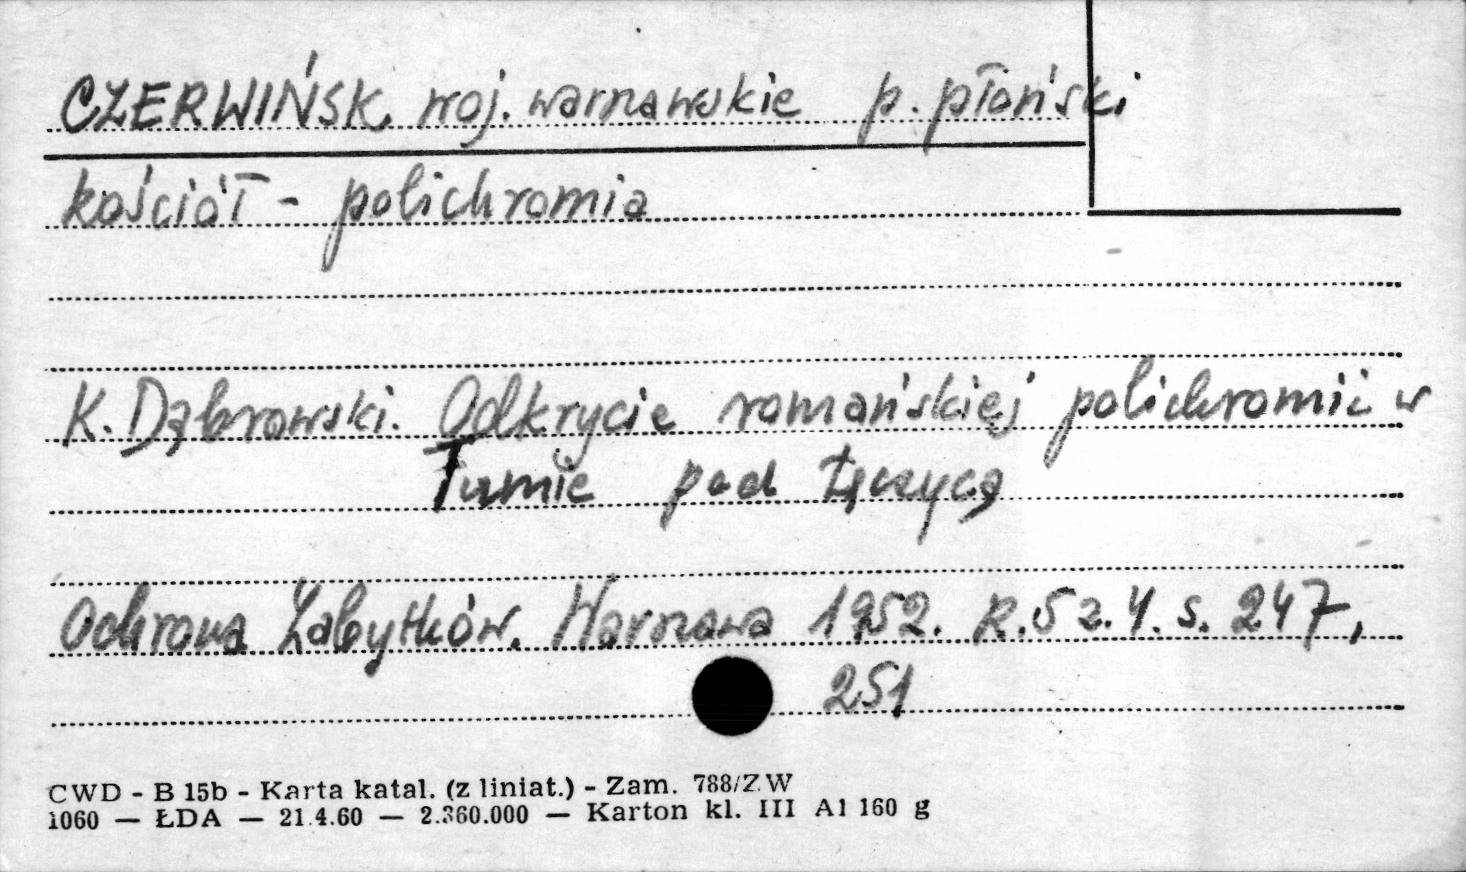 CZERWIŃSK woj. warszawskie p. płoński
kościół - polichromia
K. Dąbrowski. Odkrycie romańskiej polichromii w
Tumie pod Łęczycą
Ochrona Zabytków. Warszawa 1952. R. 5 z. 4. s. 247,
251
CWD - B 15b - Karta katal. (z liniat.) - Zam. 788/ZW
1060 — ŁDA — 21.4.60 — 2.360.000 — Karton kl. III A1 160 g